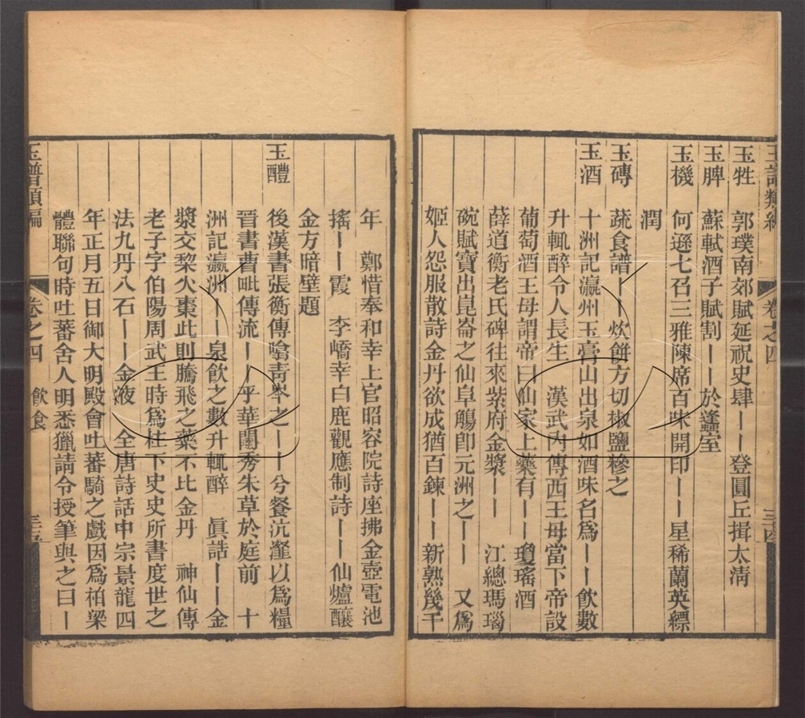 玉譜類編 卷之四 三十四
玉牲 郭璞南郊賦延祝史肆一一登圓丘揖太淸
玉脾 蘇軾酒子賦割一一於蠭室
玉機 何遜七召三雅陳席百味開印一一星稀蘭英縹
潤
玉磚 蔬食譜一一炊餅方切椒鹽糝之
玉酒 十洲記瀛州玉膏山出泉如酒味名爲一一飮數
升輒醉令人長生 漢武內傳西王母當下帝設
葡萄酒王母謂帝曰仙家上藥有一一瓊瑤酒
薛道衡老氏碑往來紫府金漿一一 江總瑪瑙
碗賦寶出崑崙之仙阜觴卽元洲之一一 又爲
姬人怨服散詩金丹欲成猶百鍊一一新熟幾千
年 鄭愔奉和幸上官昭容院詩座拂金壺電池
搖一一霞 李嶠幸白鹿觀應制詩一一仙爐釀
金方暗壁題
玉醴 後漢書張衡傳噏靑岑之一一兮餐沆瀣以爲糧
晉書曹毗傳流一一平華闥秀朱草於庭前 十
洲記瀛洲一一泉飮之數升輒醉 眞誥一一金
漿交棃火棗此則騰飛之藥不比金丹 神仙傳
老子字伯陽周武王時爲柱下史史所書度世之
法九丹八石一一金液 全唐詩話中宗景龍四
年正月五日御大明殿會吐蕃騎之戲因爲柏梁
體聯句時吐蕃舍人明悉獵請令授筆與之曰一
玉譜類編 卷之四 飮食 三十五